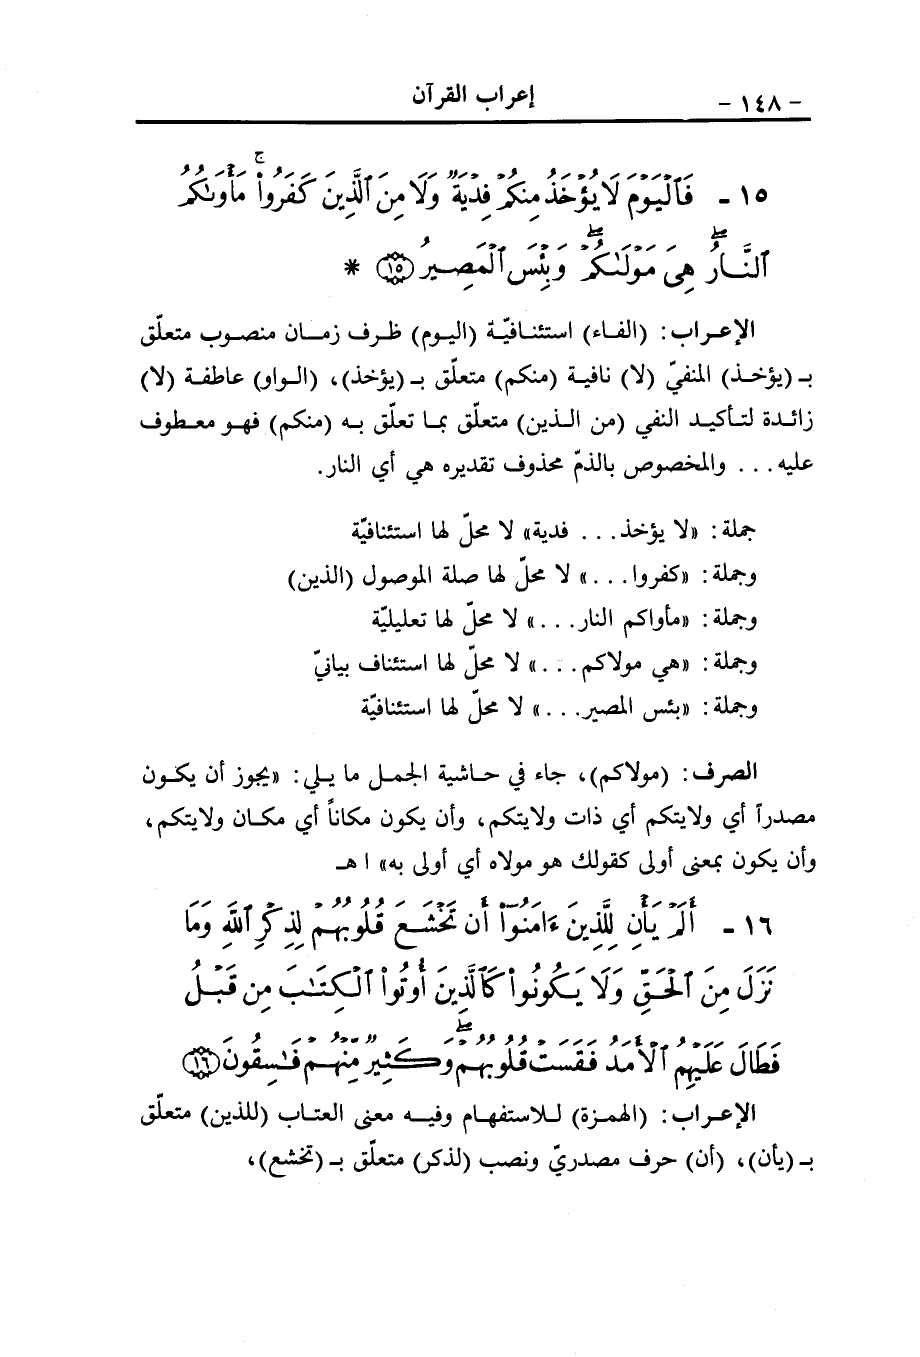 - ١٤٨ -
إعراب القرآن
١٥ - فَٱلْيَوْمَ لَا يُؤْخَذُ مِنكُمْ فِدْيَةٌ وَلَا مِنَ ٱلَّذِينَ كَفَرُوا۟ ۚ مَأْوَىٰكُمُ
ٱلنَّارُ ۖ هِىَ مَوْلَىٰكُمْ ۖ وَبِئْسَ ٱلْمَصِيرُ ﴿١٥﴾ *
الإعراب: (الفاء) استئنافيّة (اليوم) ظرف زمان منصوب متعلّق
بـ (يؤخذ) المنفيّ (لا) نافية (منكم) متعلّق بـ (يؤخذ)، (الواو) عاطفة (لا)
زائدة لتأكيد النفي (من الذين) متعلّق بما تعلّق به (منكم) فهو معطوف
عليه... والمخصوص بالذمّ محذوف تقديره هي أي النار.
جملة: «لا يؤخذ... فدية» لا محلّ لها استئنافيّة
وجملة: «كفروا...» لا محلّ لها صلة الموصول (الذين)
وجملة: «مأواكم النار...» لا محلّ لها تعليليّة
وجملة: «هي مولاكم...» لا محلّ لها استئناف بيانيّ
وجملة: «بئس المصير...» لا محلّ لها استئنافيّة
الصرف: (مولاكم)، جاء في حاشية الجمل ما يلي: «يجوز أن يكون
مصدراً أي ولايتكم أي ذات ولايتكم، وأن يكون مكاناً أي مكان ولايتكم،
وأن يكون بمعنى أولى كقولك هو مولاه أي أولى به» ا هـ
١٦ - أَلَمْ يَأْنِ لِلَّذِينَ ءَامَنُوٓا۟ أَن تَخْشَعَ قُلُوبُهُمْ لِذِكْرِ ٱللَّهِ وَمَا
نَزَلَ مِنَ ٱلْحَقِّ وَلَا يَكُونُوا۟ كَٱلَّذِينَ أُوتُوا۟ ٱلْكِتَـٰبَ مِن قَبْلُ
فَطَالَ عَلَيْهِمُ ٱلْأَمَدُ فَقَسَتْ قُلُوبُهُمْ ۖ وَكَثِيرٌ مِّنْهُمْ فَـٰسِقُونَ ﴿١٦﴾
الإعراب: (الهمزة) للاستفهام وفيه معنى العتاب (للذين) متعلّق
بـ (يأن)، (أن) حرف مصدريّ ونصب (لذكر) متعلّق بـ (تخشع)،